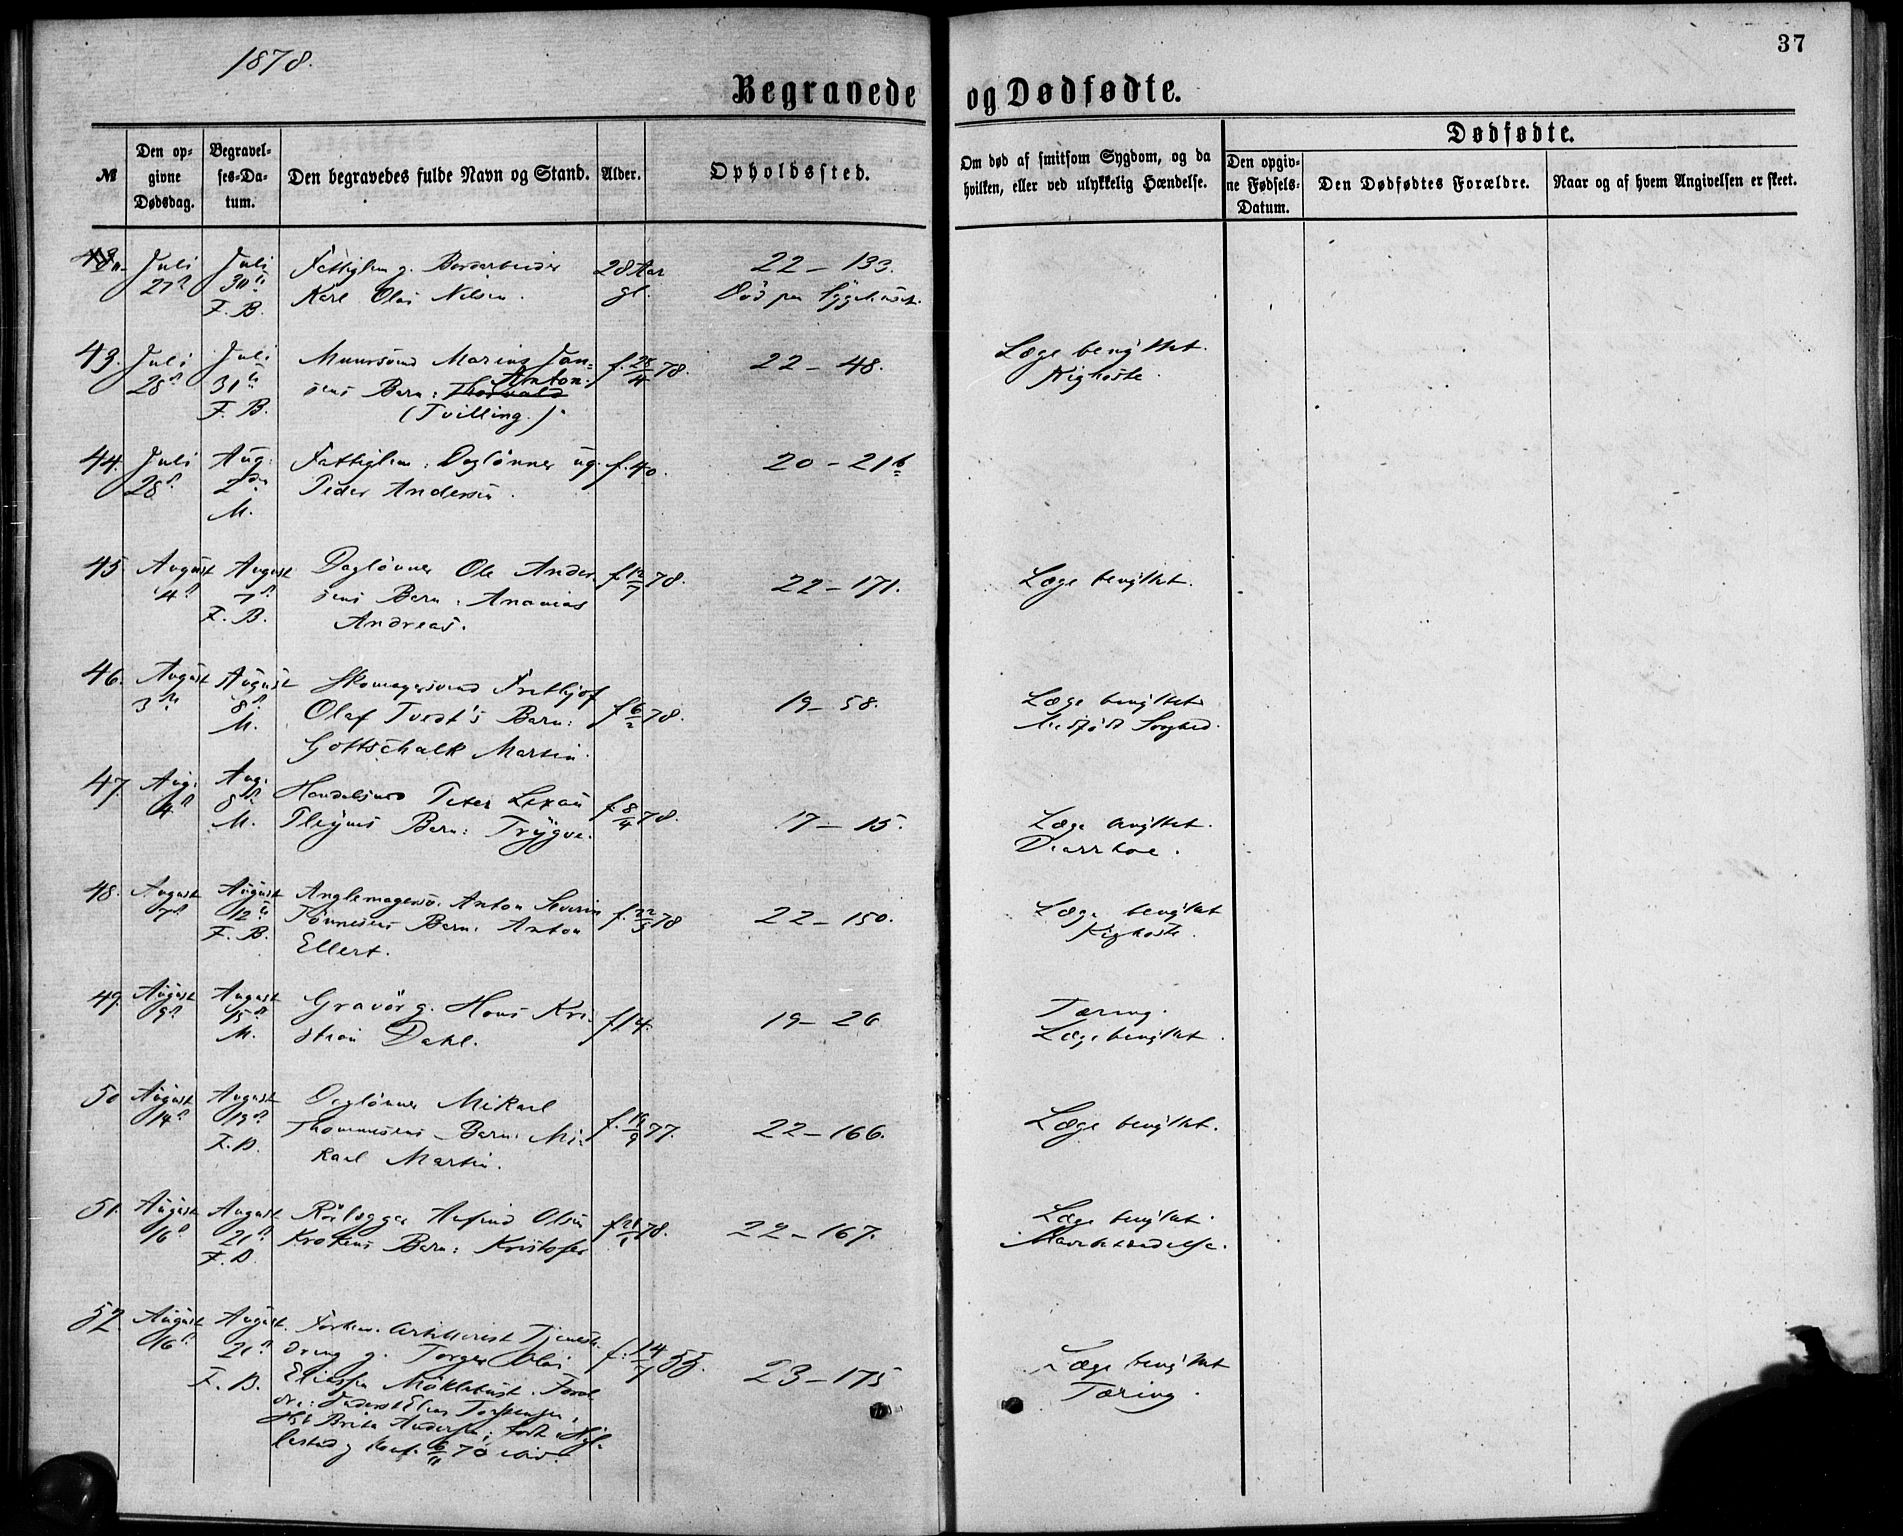 1878.
37
Begravede og Dødfødte.
№
Den op-
givne
Dødsdag.
Begravel-
ses-Da-
tum.
Den begravedes fulde Navn og Stand.
Alder.
Opholdssted.
Om død af smitsom Sygdom, og da
hvilken, eller ved ulykkelig Hændelse.
Dødfødte.
Den opgiv-
ne Fødsels-
Datum.
Den Dødfødtes Forældre.
Naar og af hvem Angivelsen er skeet.
Juli
27
Juli
30
F. B.
Fattiglem g.
Karl Olai Nilsen.
28 Aar
gl.
22 – 133.
Død paa Sygehuset.
43.
Juli
28
Juli
31
F. B.
Muursvend Marius Jan-
sens Barn: Thorvald Anton.
(Tvilling.)
f. 28/4 78.
22 – 48.
Læge benyttet.
Kighoste.
44.
Juli
28
Aug.
2
M.
Fattiglem: Daglønner ug.
Peder Andersen.
f. 40.
20 – 21b
45.
August
4
August
7
F. B.
Daglønner Ole Ander-
sens Barn: Ananias
Andreas.
f. 12/7 78.
22 – 171.
Læge benyttet.
46.
August
3
August
8
M.
Skomagersvend Fridthjof
Olaf Tvedt's Barn:
Gottschalk Martin.
f. 6/2 78.
19 – 58.
Læge benyttet
Medfødt Svaghed.
47.
Aug.
4
Aug.
8
M.
Handelsmd Peter Lexau
Pleyms Barn: Trygve.
f. 8/4 78.
17 – 15.
Læge benyttet.
Diarrhoe.
48.
August
7
August
12
F. B.
Anglemagersv. Anton Severin
Tønnesens Barn: Anton
Ellert.
f. 22/3 78
22 – 150.
Læge benyttet
Kighoste.
49.
August
9
August
15
M.
Gravör g. Hans Kri-
stian Dahl.
f. 14.
19 – 26
Tæring.
Læge benyttet.
50
August
14
August
19
F. B.
Daglønner Mikael
Thommesens Barn: Mi-
kael Martin.
f. 19/9 77.
22 – 166.
Læge benyttet.
51.
August
16
August
21
F. B.
Rörlægger Olsen
Krokens Barn: Kristofer
78.
22 – 167.
Læge benyttet.
Mavebetændelse.
52.
August
16
August.
21
F. B.
Forhen. Artillerist Tjeneste-
dreng g. Torger Olai
Eliassen Möklebust. Foræl-
dre:
f. 14/7 55.
23 – 175
Læge benyttet
Tæring.